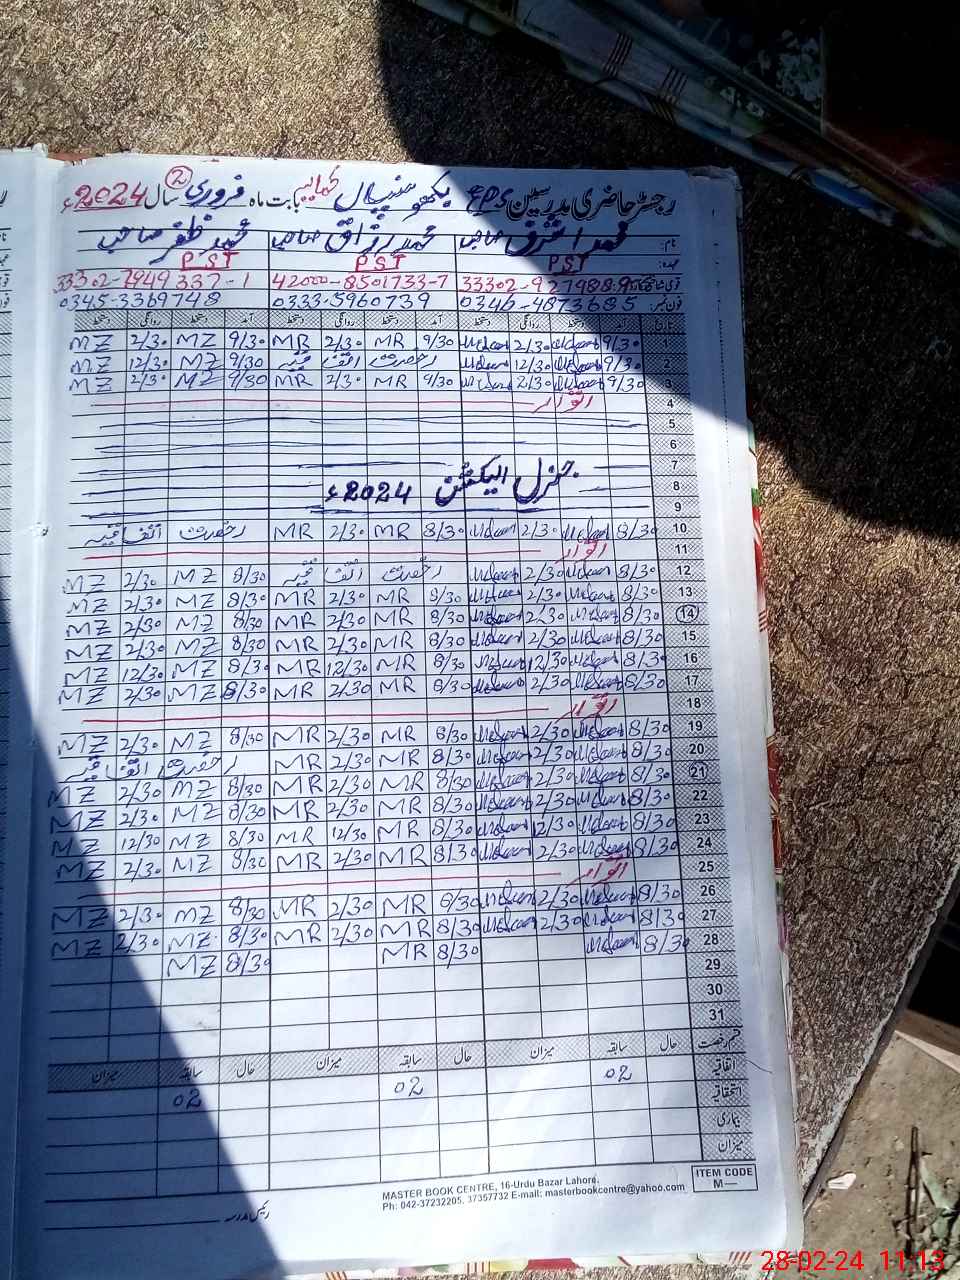 رجسٹر حاضری مدرسین GPS بکھو سنپال کمالیہ بابت ماہ فروری 2 سال 2024ء
نام: محمد اشرف صاحب محمد رزاق صاحب محمد ظفر صاحب
عہدہ: PST PST PST
42000-8501733-7 33302-7949337-1
فون نمبر: 0346-4873685 0333-5960739 0345-3369748
تاریخ آمد دستخط روانگی دستخط آمد دستخط روانگی دستخط آمد دستخط روانگی دستخط
1 9/30 2/30 9/30 MR 2/30 MR 9/30 MZ 2/30 MZ
2 9/30 12/30 رخصت اتفاقیہ 9/30 MZ 12/30 MZ
3 9/30 2/30 9/30 MR 2/30 MR 9/30 MZ 2/30 MZ
4 اتوار
5
6
7
8 جنرل الیکشن 2024ء
9
10 8/30 2/30 8/30 MR 2/30 MR رخصت اتفاقیہ
11 اتوار
12 8/30 2/30 رخصت اتفاقیہ 8/30 MZ 2/30 MZ
13 8/30 2/30 8/30 MR 2/30 MR 8/30 MZ 2/30 MZ
14 8/30 2/30 8/30 MR 2/30 MR 8/30 MZ 2/30 MZ
15 8/30 2/30 8/30 MR 2/30 MR 8/30 MZ 2/30 MZ
16 8/30 12/30 8/30 MR 12/30 MR 8/30 MZ 12/30 MZ
17 8/30 2/30 8/30 MR 2/30 MR 8/30 MZ 2/30 MZ
18 اتوار
19 8/30 2/30 8/30 MR 2/30 MR 8/30 MZ 2/30 MZ
20 8/30 2/30 8/30 MR 2/30 MR رخصت اتفاقیہ
21 8/30 2/30 8/30 MR 2/30 MR 8/30 MZ 2/30 MZ
22 8/30 2/30 8/30 MR 2/30 MR 8/30 MZ 2/30 MZ
23 8/30 12/30 8/30 MR 12/30 MR 8/30 MZ 12/30 MZ
24 8/30 2/30 8/30 MR 2/30 MR 8/30 MZ 2/30 MZ
25 اتوار
26 8/30 2/30 8/30 MR 2/30 MR 8/30 MZ 2/30 MZ
27 8/30 2/30 8/30 MR 2/30 MR 8/30 MZ 2/30 MZ
28 8/30 8/30 MR 8/30 MZ
29
30
31
قسم رخصت حال سابقہ میزان حال سابقہ میزان حال سابقہ میزان
اتفاقیہ 02 02 02
استحقاقیہ
بیماری
میزان
رئیس مدرسہ
MASTER BOOK CENTRE, 16-Urdu Bazar Lahore.
Ph: 042-37232205, 37357732 E-mail: masterbookcentre@yahoo.com
ITEM CODE
M—
28-02-24 11:13